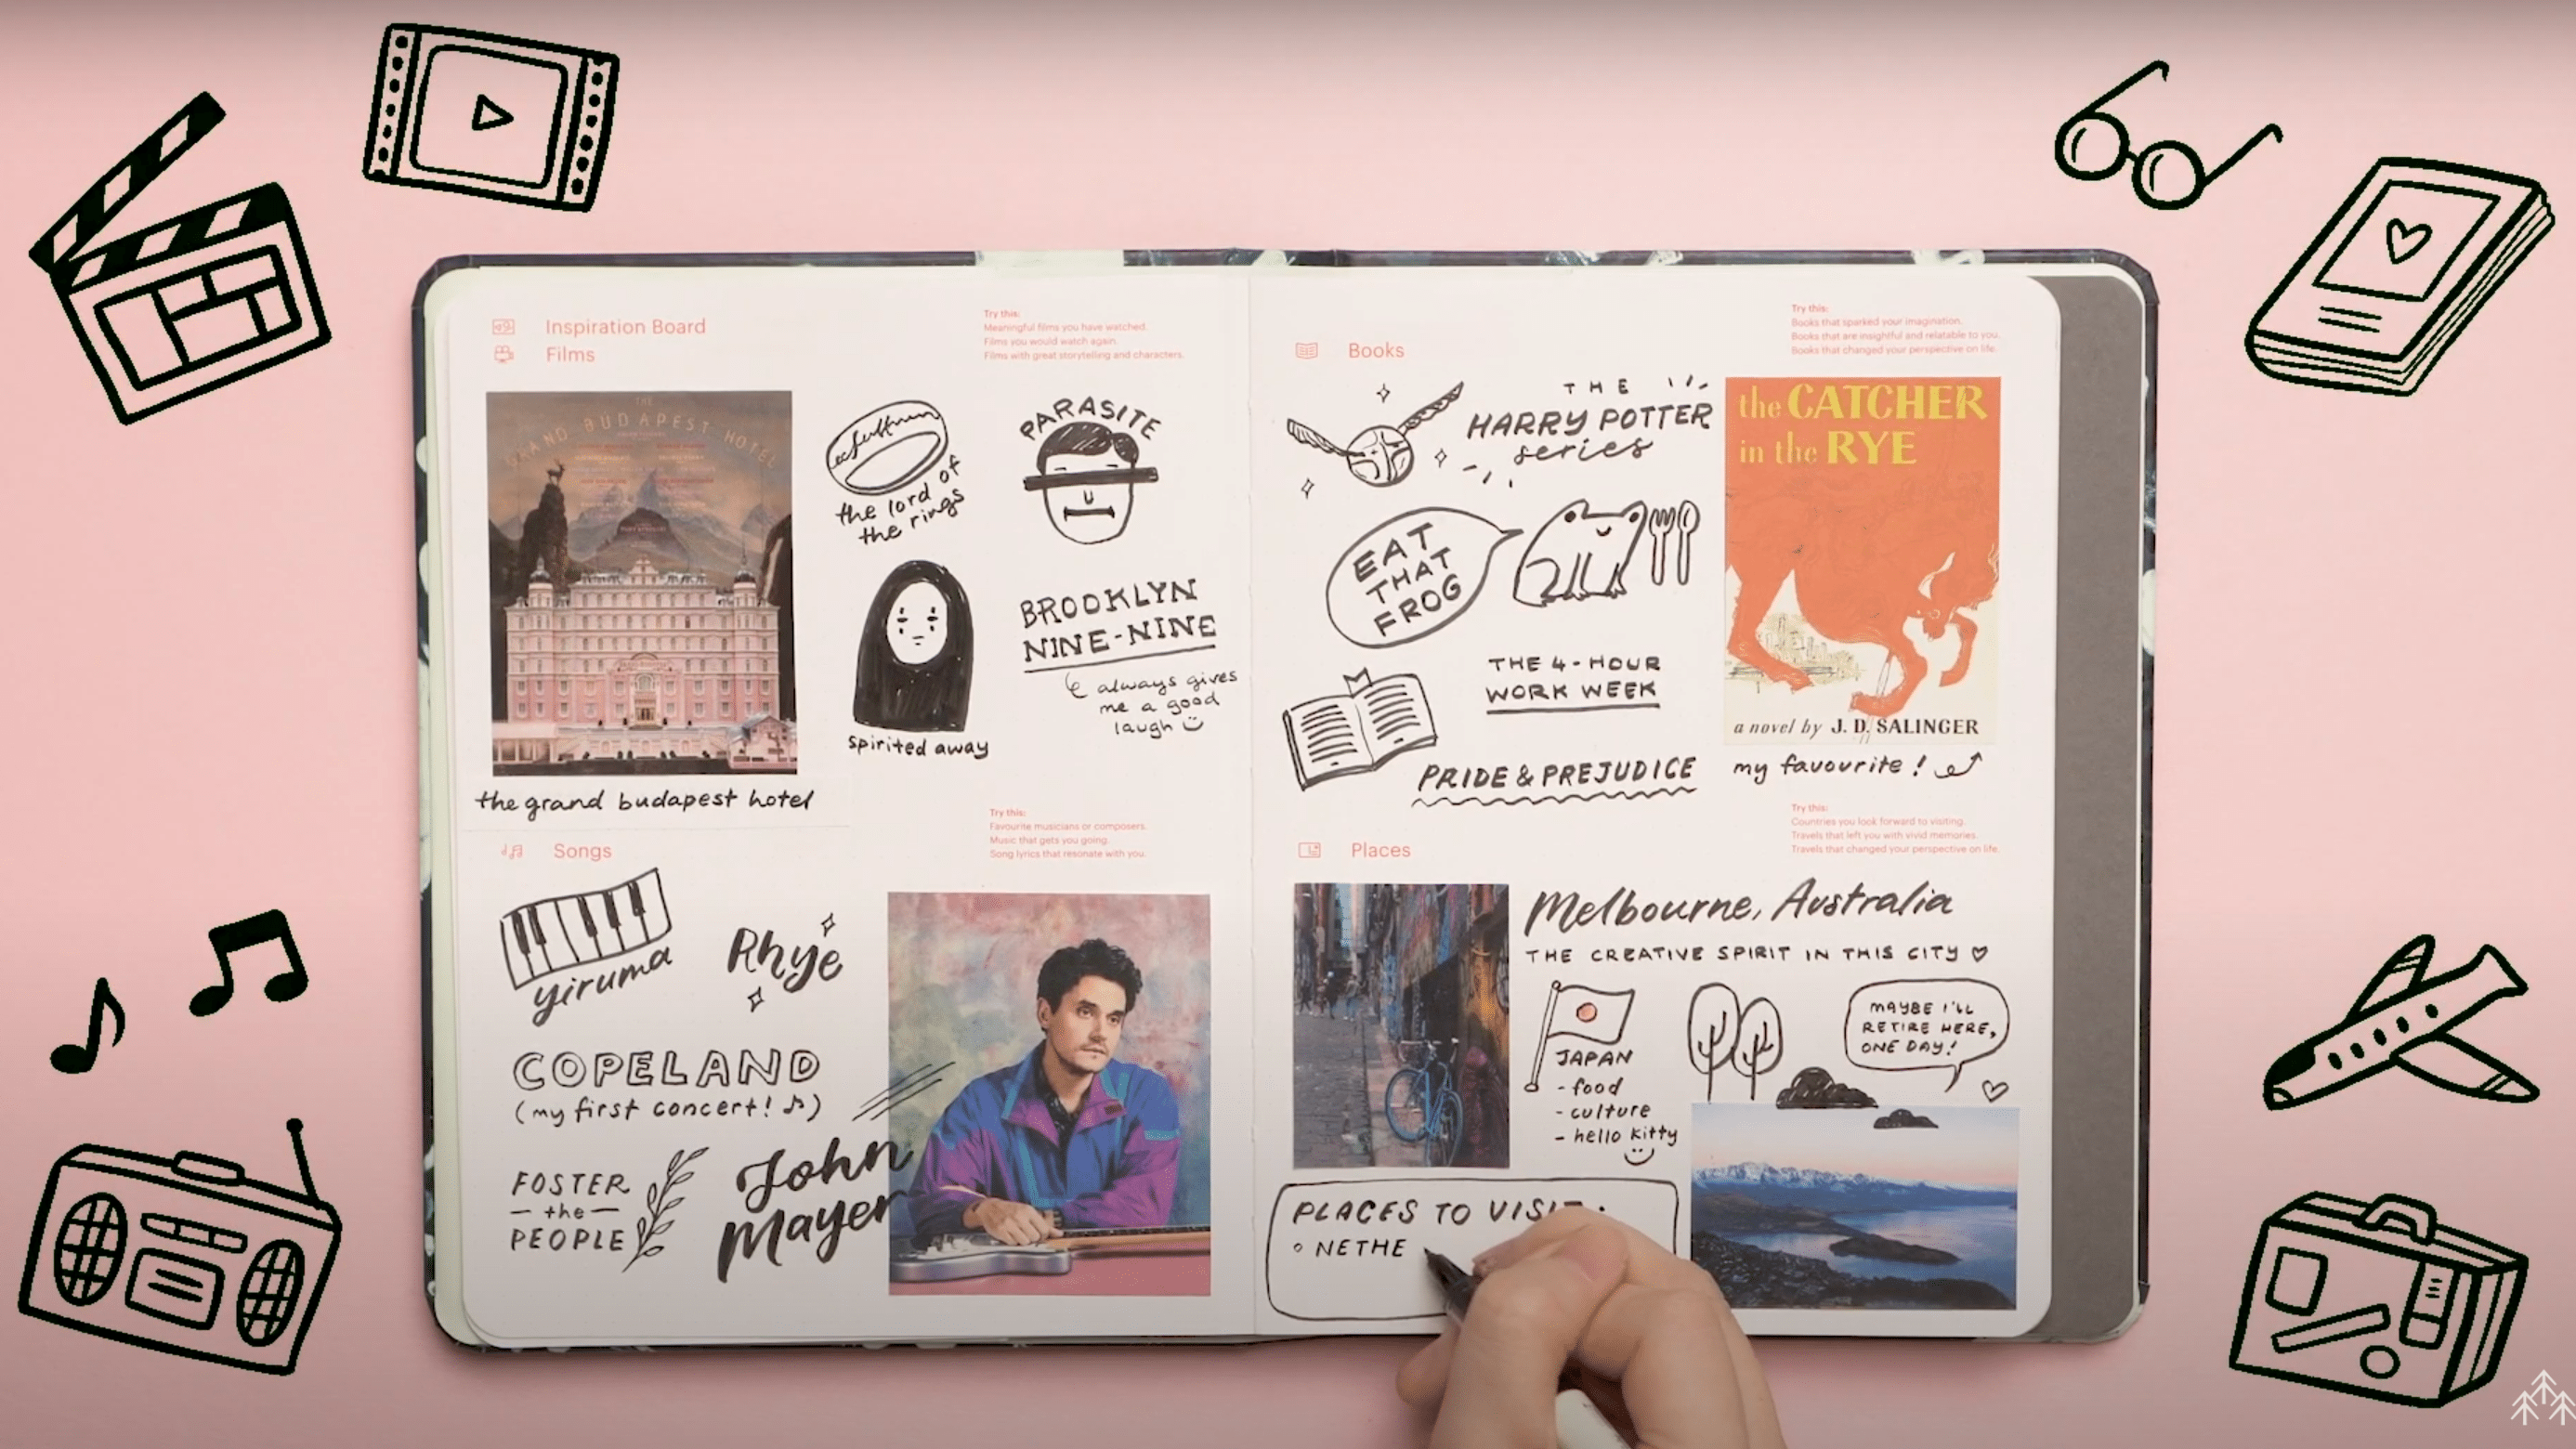 Inspiration Board
Films
Try this:
Meaningful films you have watched.
Films you would watch again.
Films with great storytelling and characters.
THE
GRAND BUDAPEST HOTEL
the grand budapest hotel
the lord of
the rings
PARASITE
spirited away
BROOKLYN
NINE-NINE
always gives
me a good
laugh
Songs
Try this:
Favourite musicians or composers.
Music that gets you going.
Song lyrics that resonate with you.
yiruma
Rhye
COPELAND
(my first concert! ♫)
FOSTER
— the —
PEOPLE
John
Mayer
Books
Try this:
Books that sparked your imagination.
Books that are insightful and relatable to you.
Books that changed your perspective on life.
THE
HARRY POTTER
series
EAT
THAT
FROG
THE 4-HOUR
WORK WEEK
PRIDE & PREJUDICE
the CATCHER
in the RYE
a novel by J. D. SALINGER
my favourite!
Places
Try this:
Countries you look forward to visiting.
Travels that left you with vivid memories.
Travels that changed your perspective on life.
Melbourne, Australia
THE CREATIVE SPIRIT IN THIS CITY ♡
JAPAN
- food
- culture
- hello kitty
MAYBE I'LL
RETIRE HERE,
ONE DAY!
PLACES TO VISIT:
◦ NETHE